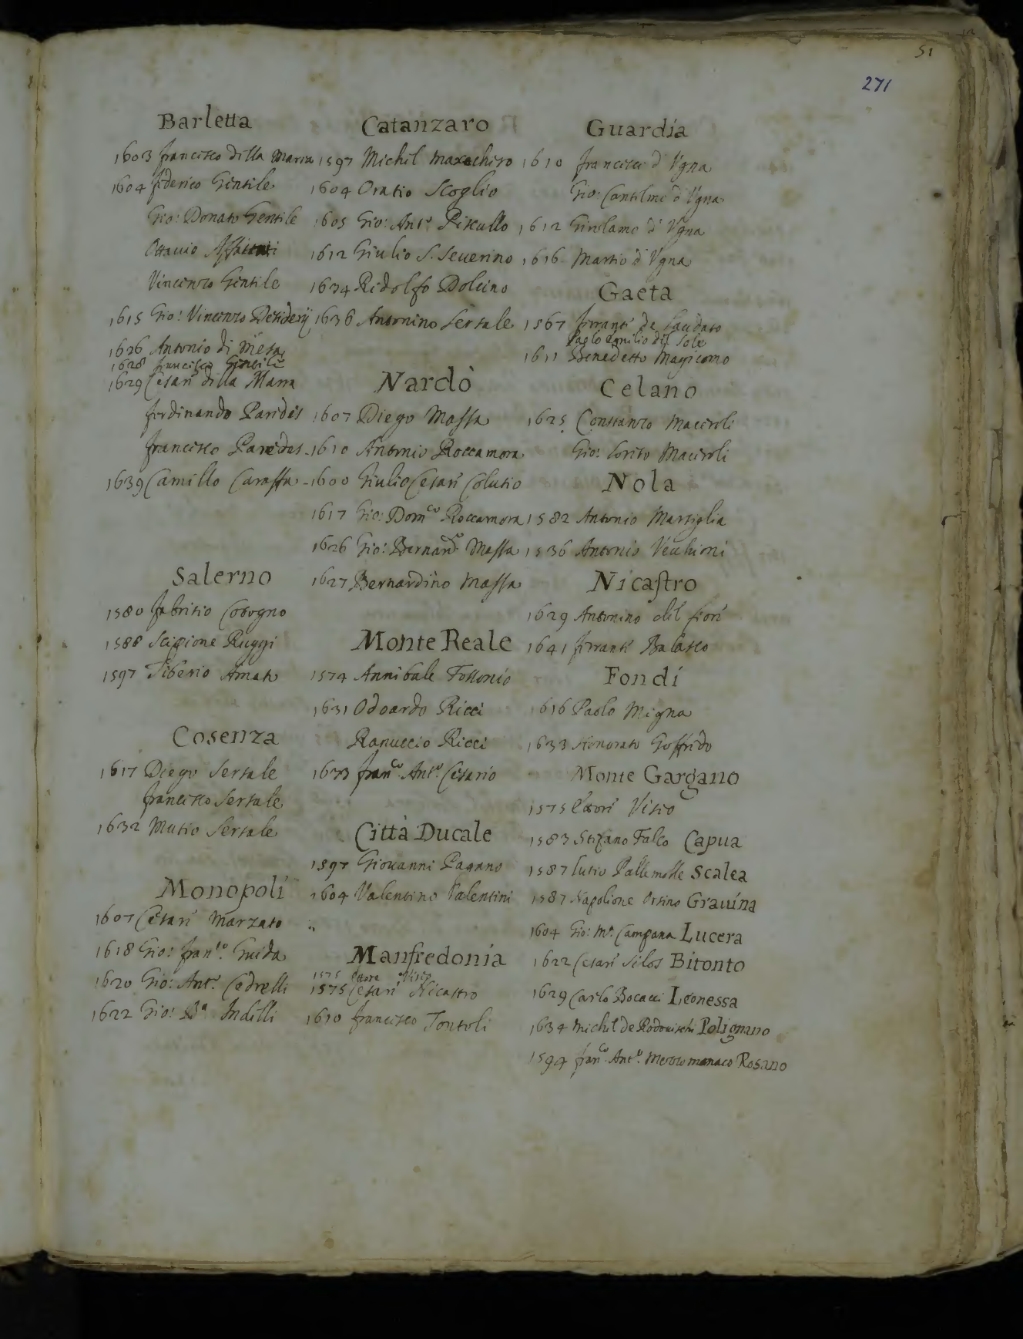 51
271
Barletta
1603 francesco della Marra
1604 federico Gentile
Gio: Donato Gentile
Ottavio
Vincenzo Gentile
1615 Gio: Vincenzo Desiderij
1626 Antonio di Mesa
1628 francesco Gentile
1629 Cesare della Marra
ferdinando Paredes
francesco Paredes
1639 Camillo Caraffa
Salerno
1580 fabritio
1588 Scipione Ruggi
1597 Tiberio Amato
Cosenza
1617 Diego Sersale
francesco Sersale
1632 Mutio Sersale
Monopoli
1607 Cesare Marzato
1618 Gio: fran.co Guida
1620 Gio: Ant.o
1622 Gio: B.a Indelli
Catanzaro
1597 Michel
1604 Oratio Scoglio
1605 Gio: Ant.o
1612 Giulio S. Severino
1634 Ridolfo Dolcino
1636 Antonino Sersale
Nardò
1607 Diego Massa
1610 Antonio Roccamora
1600 Giulio Cesare Colutio
1617 Gio: Dom.co Roccamora
1626 Gio: Bernard.o Massa
1627 Bernardino Massa
Monte Reale
1574 Annibale
1631 Odoardo Ricci
Ranuccio Ricci
1673 fran.co Ant.o Cesario
Città Ducale
1597 Giovanni Pagano
1604 Valentino Valentini
Manfredonia
1575
1575 Cesare Nicastro
1610 francesco Tontoli
Guardia
1610 francesco d'Ugna
Gio: d'Ugna
1612 Girolamo d'Ugna
1616 Martio d'Ugna
Gaeta
1567 ferrante de Laudato
Paolo Emilio del Sole
1611 Benedetto
Celano
1625 Costanzo Macciroli
Gio: Macciroli
Nola
1582 Antonio Marsiglia
1536 Antonio Vecchioni
Nicastro
1629 Antonino del fiore
1641 ferrante
Fondi
1616 Paolo Migna
1633 Honorato Goffrido
Monte Gargano
1575
1583 Stefano Falco Capua
1587 Scalea
1587 Napolione Ursino Gravina
1604 Gio: Campana Lucera
1622 Cesare Silos Bitonto
1629 Carlo Bocacci Leonessa
1634 Michel de Polignano
1594 fran.co Ant.o Rosano